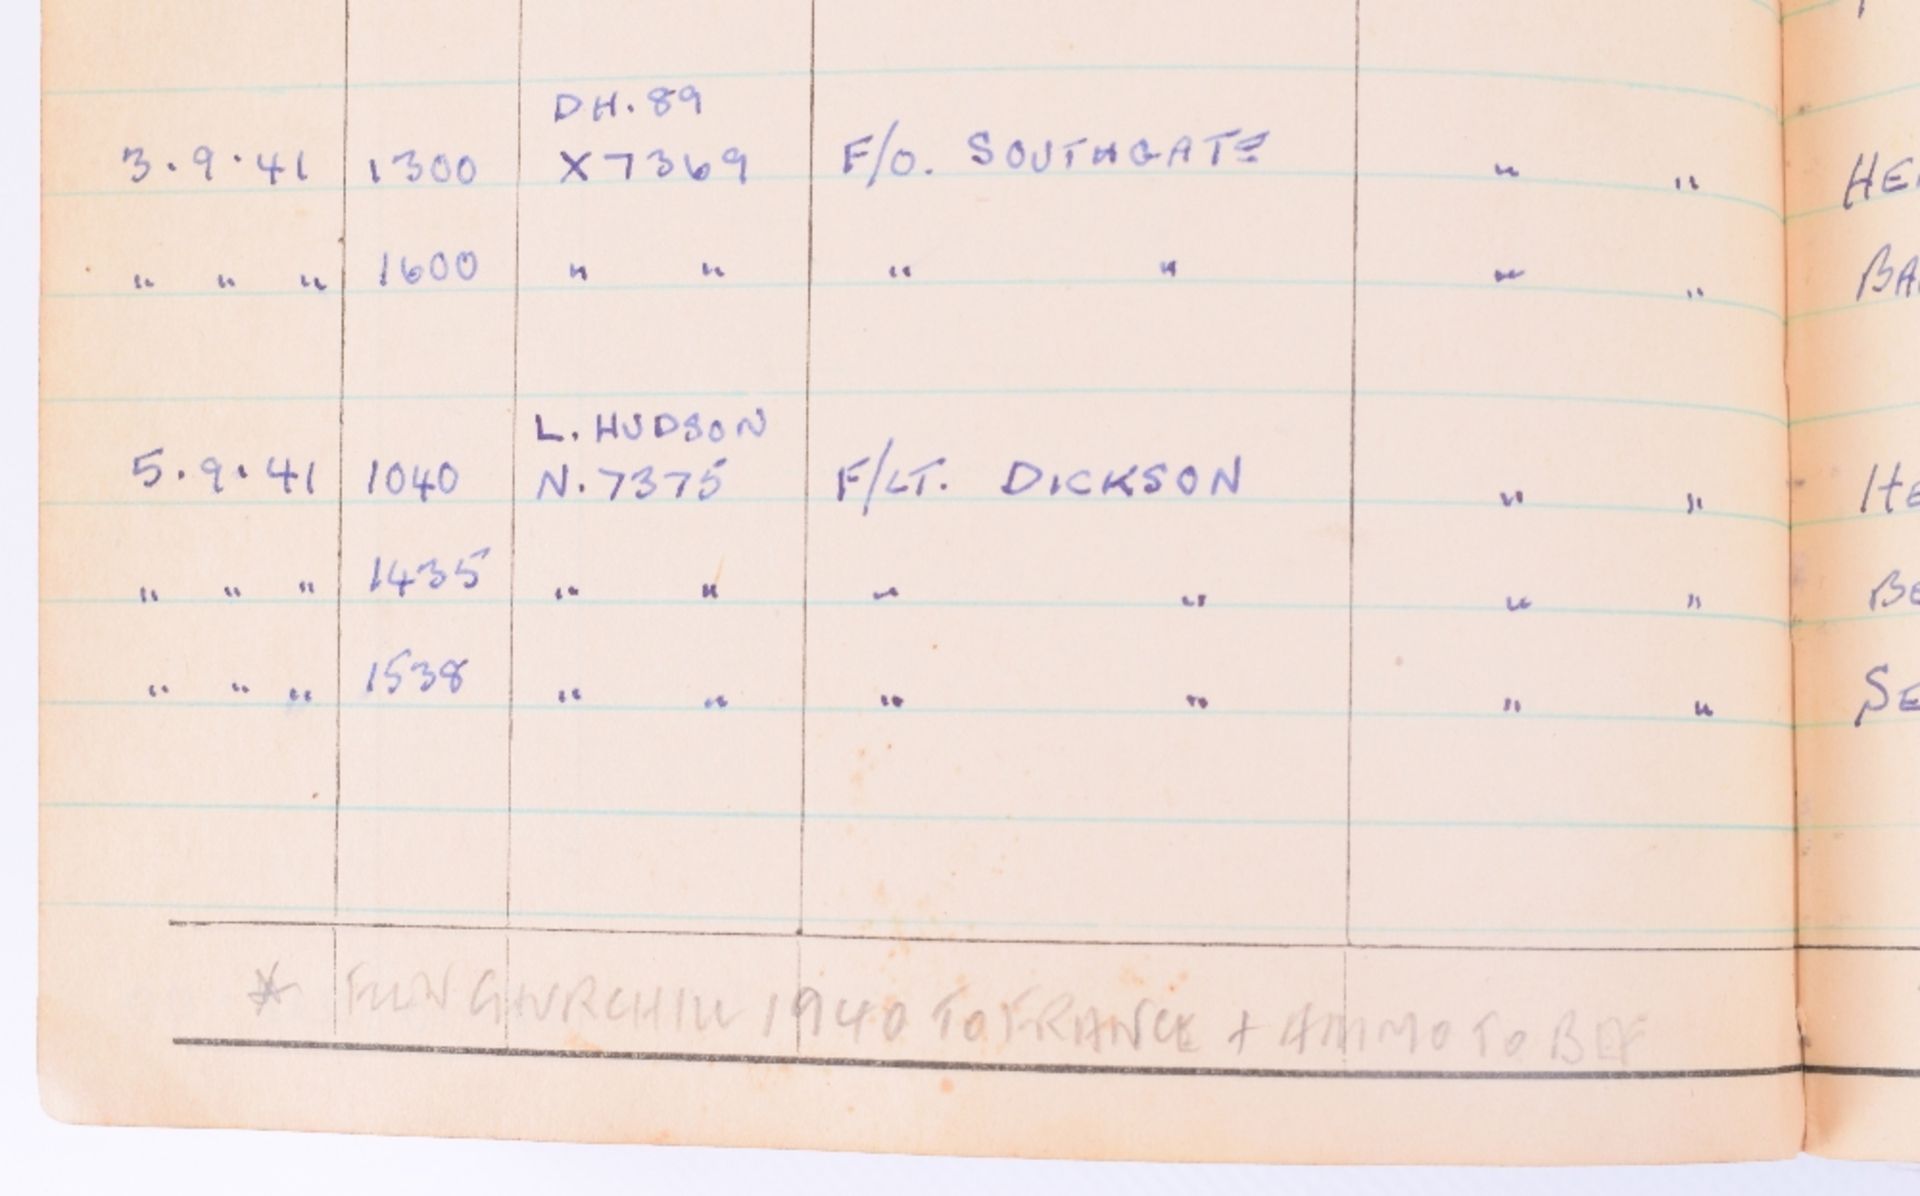 DH.89
3.9.41 1300 X7369 F/O. SOUTHGATE " " HE
" " " 1600 " " " " " " BA
L. HUDSON
5.9.41 1040 N.7375 F/LT. DICKSON " " HE
" " " 1435 " " " " " " BE
" " " 1538 " " " " " " SE
* FLEW CHURCHILL 1940 TO FRANCE + AMMO TO BEF